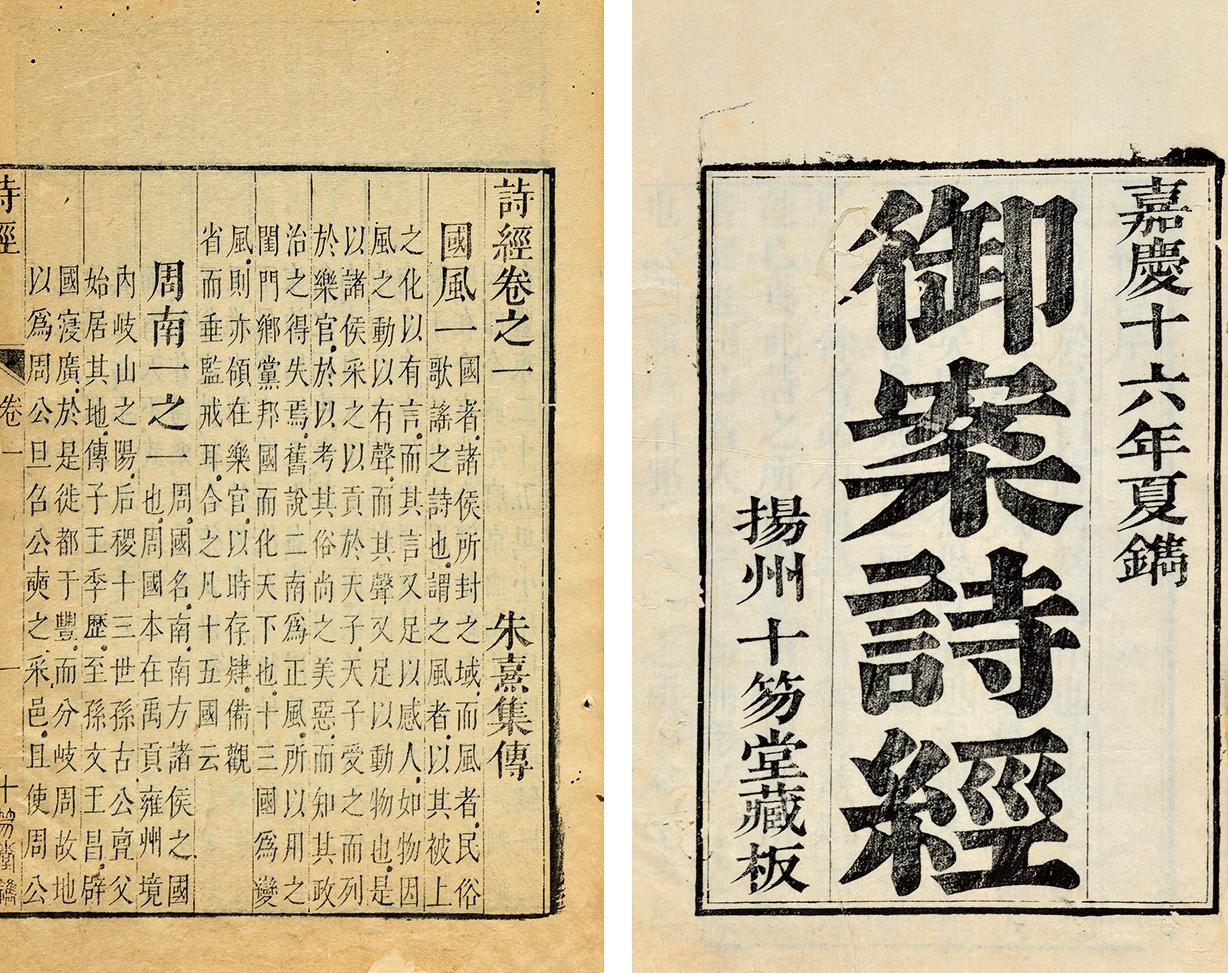 嘉慶十六年夏鐫
御案詩經
揚州十笏堂藏板
詩經卷之一 朱熹集傳
國風一
國者諸侯所封之域而風者民俗
歌謠之詩也謂之風者以其被上
之化以有言而其言又足以感人如物因
風之動以有聲而其聲又足以動物也是
以諸侯采之以貢於天子天子受之而列
於樂官於以考其俗尚之美惡而知其政
治之得失焉舊說二南爲正風所以用之
閨門鄉黨邦國而化天下也十三國爲變
風則亦領在樂官以時存肄備觀
省而垂監戒耳合之凡十五國云
周南一之一
周國名南南方諸侯之國
也周國本在禹貢雍州境
內岐山之陽后稷十三世孫古公亶父
始居其地傳子王季歷至孫文王昌辟
國寖廣於是徙都于豐而分岐周故地
以爲周公旦召公奭之采邑且使周公
詩經 卷一 一 十笏堂鐫